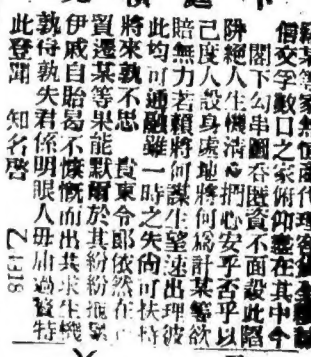 某等家無恒產代理客
交孚數口之家俯仰盡在其中今
閣下勾串圖吞匿資不面設此陷
阱絕人生機清心捫心安乎否乎以
己度人設身處地將何為計某等欲
賠無力若賴將何謀生望速出理彼
此均可通融雖一時之失尚可扶持
將來孰不思 貴東令郎依然在
貿遷某等果能默爾於其紛紛
伊戚自貽曷不慷慨而出共求生機
孰得孰失君係明眼人毋庸過贅特
此登聞 知名啓